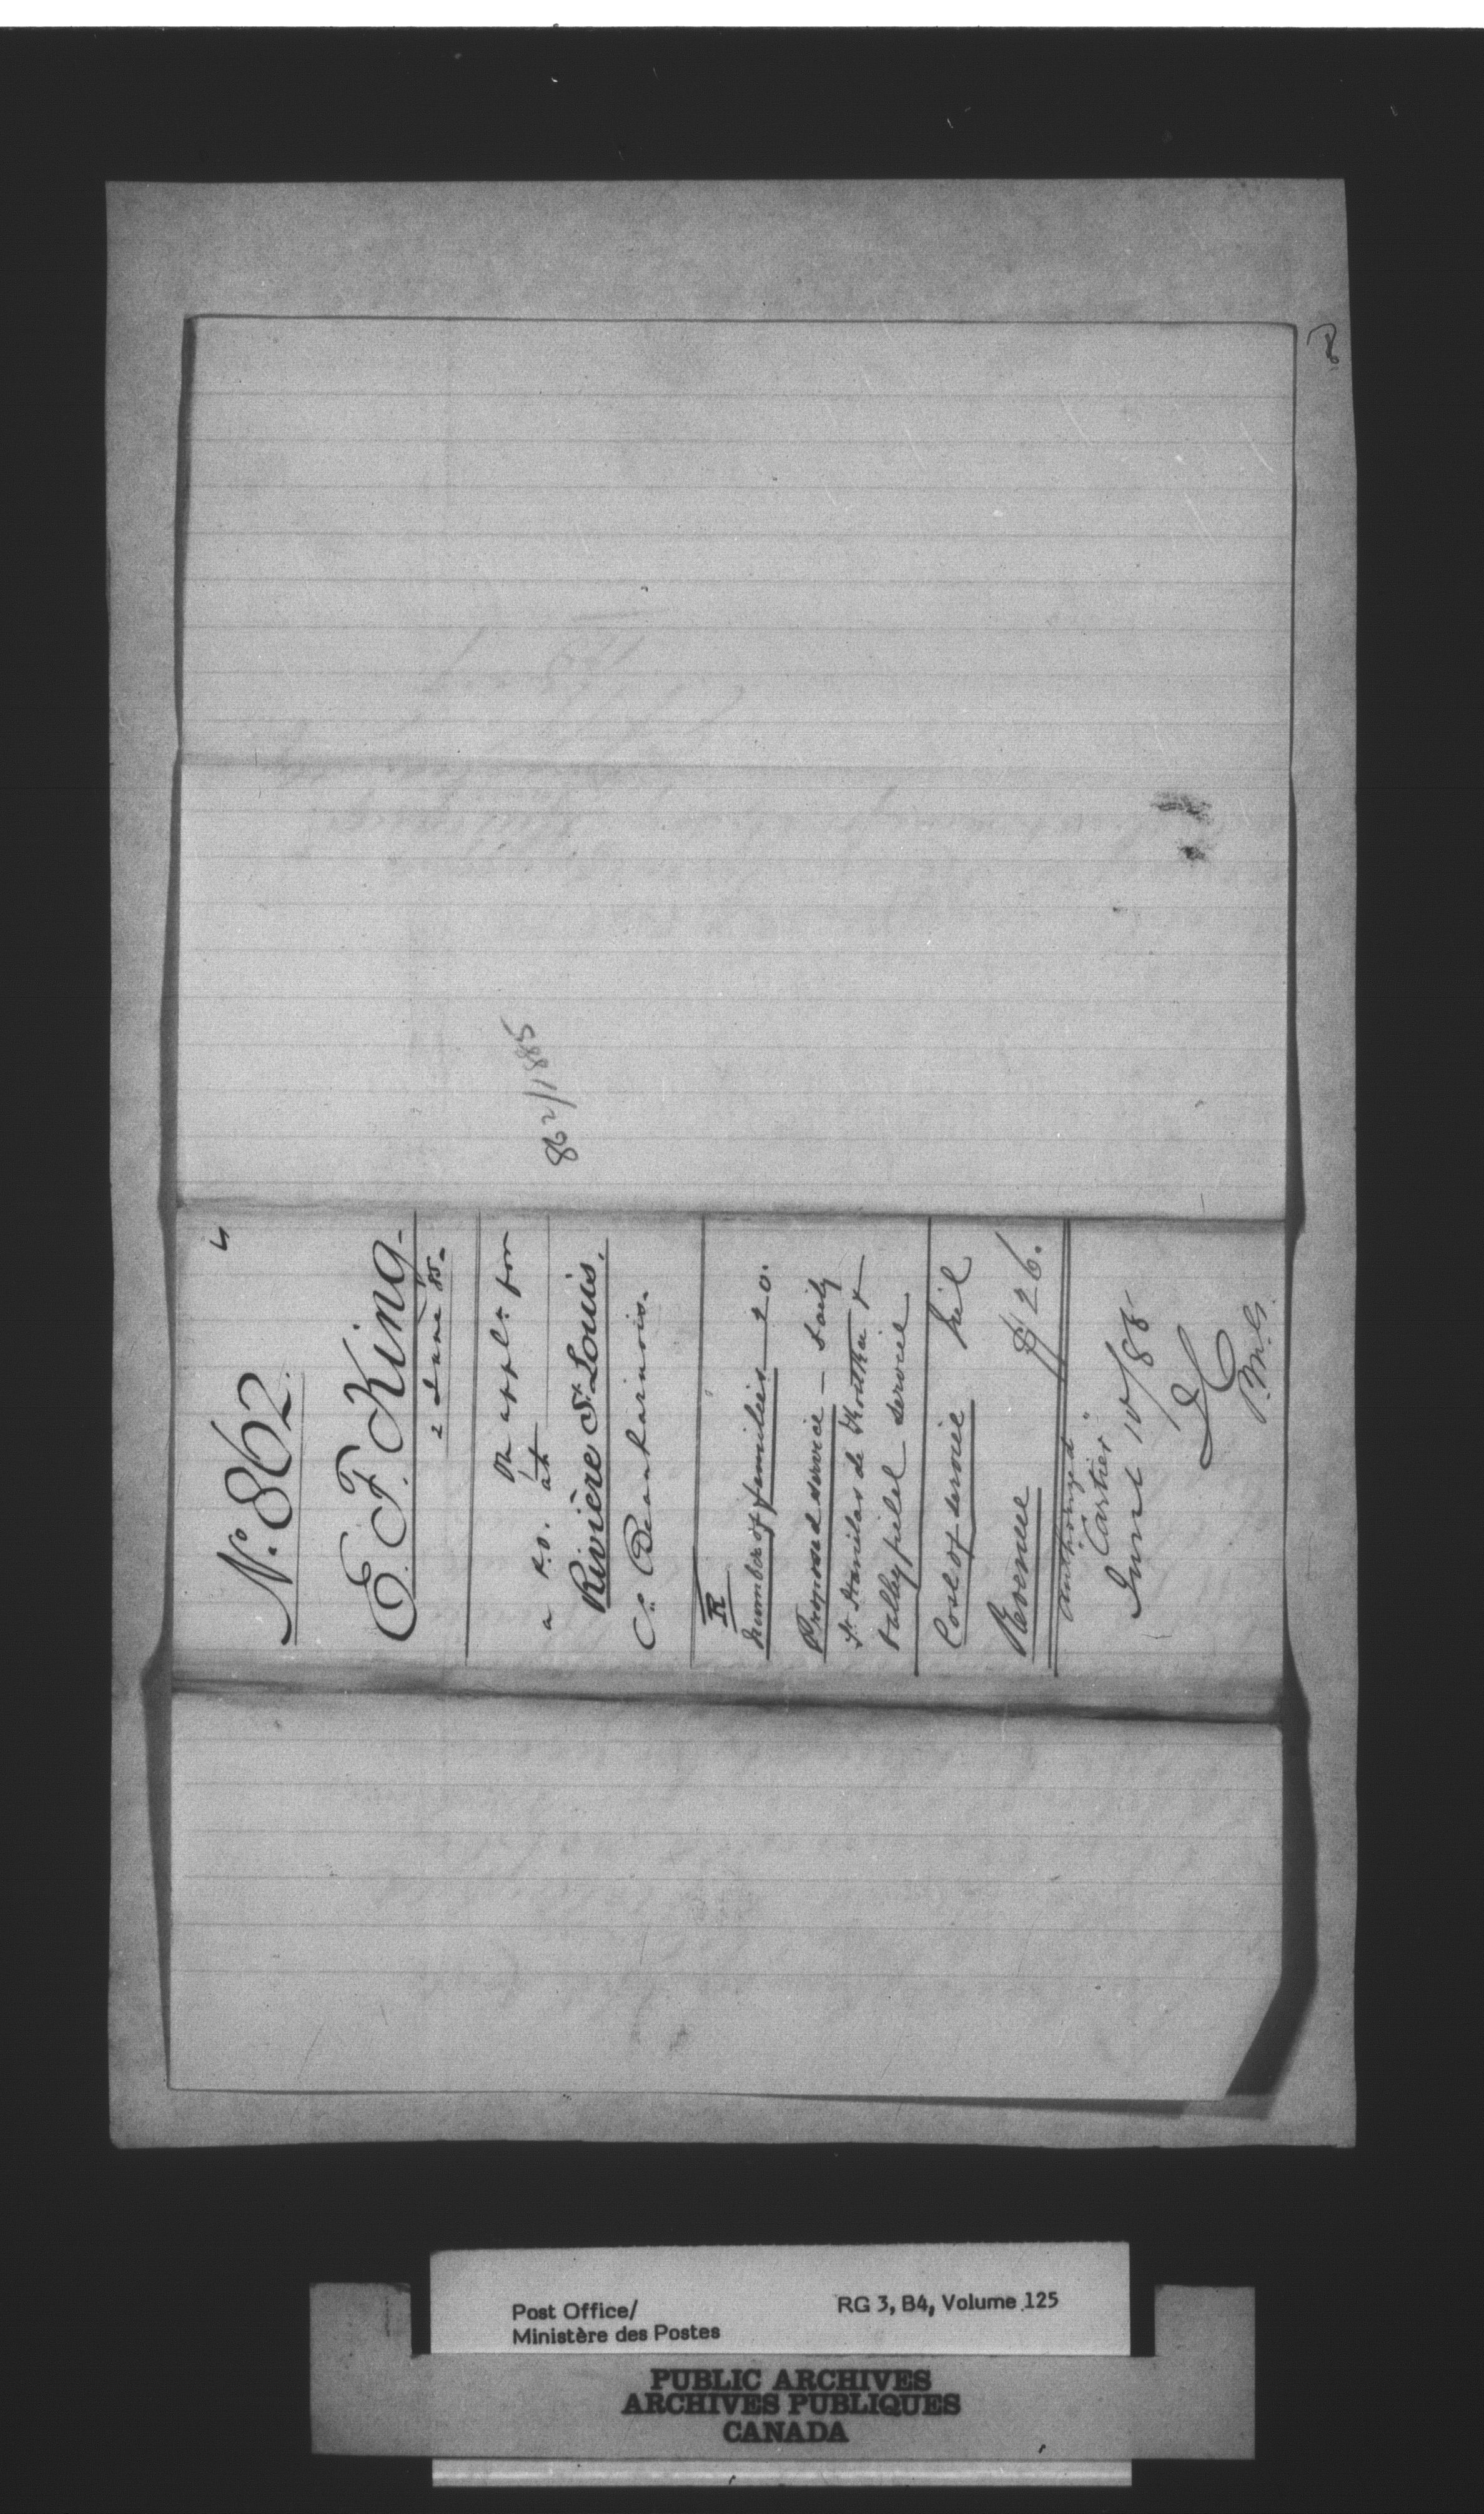 No. 862.
E. F. King.
2 June 85.
On appln for
a P.O. at
Rivière St. Louis.
Co. Beauharnois.
R
Number of families 20.
Proposed service - Daily
St. Stanislas de Kostka &
Valleyfield service
Cost of service nil
Revenue $126.
Authorized
"Cartier"
June 10/85
P.M.G.
862/1885
Post Office/
Ministère des Postes
RG 3, B4, Volume 125
PUBLIC ARCHIVES
ARCHIVES PUBLIQUES
CANADA